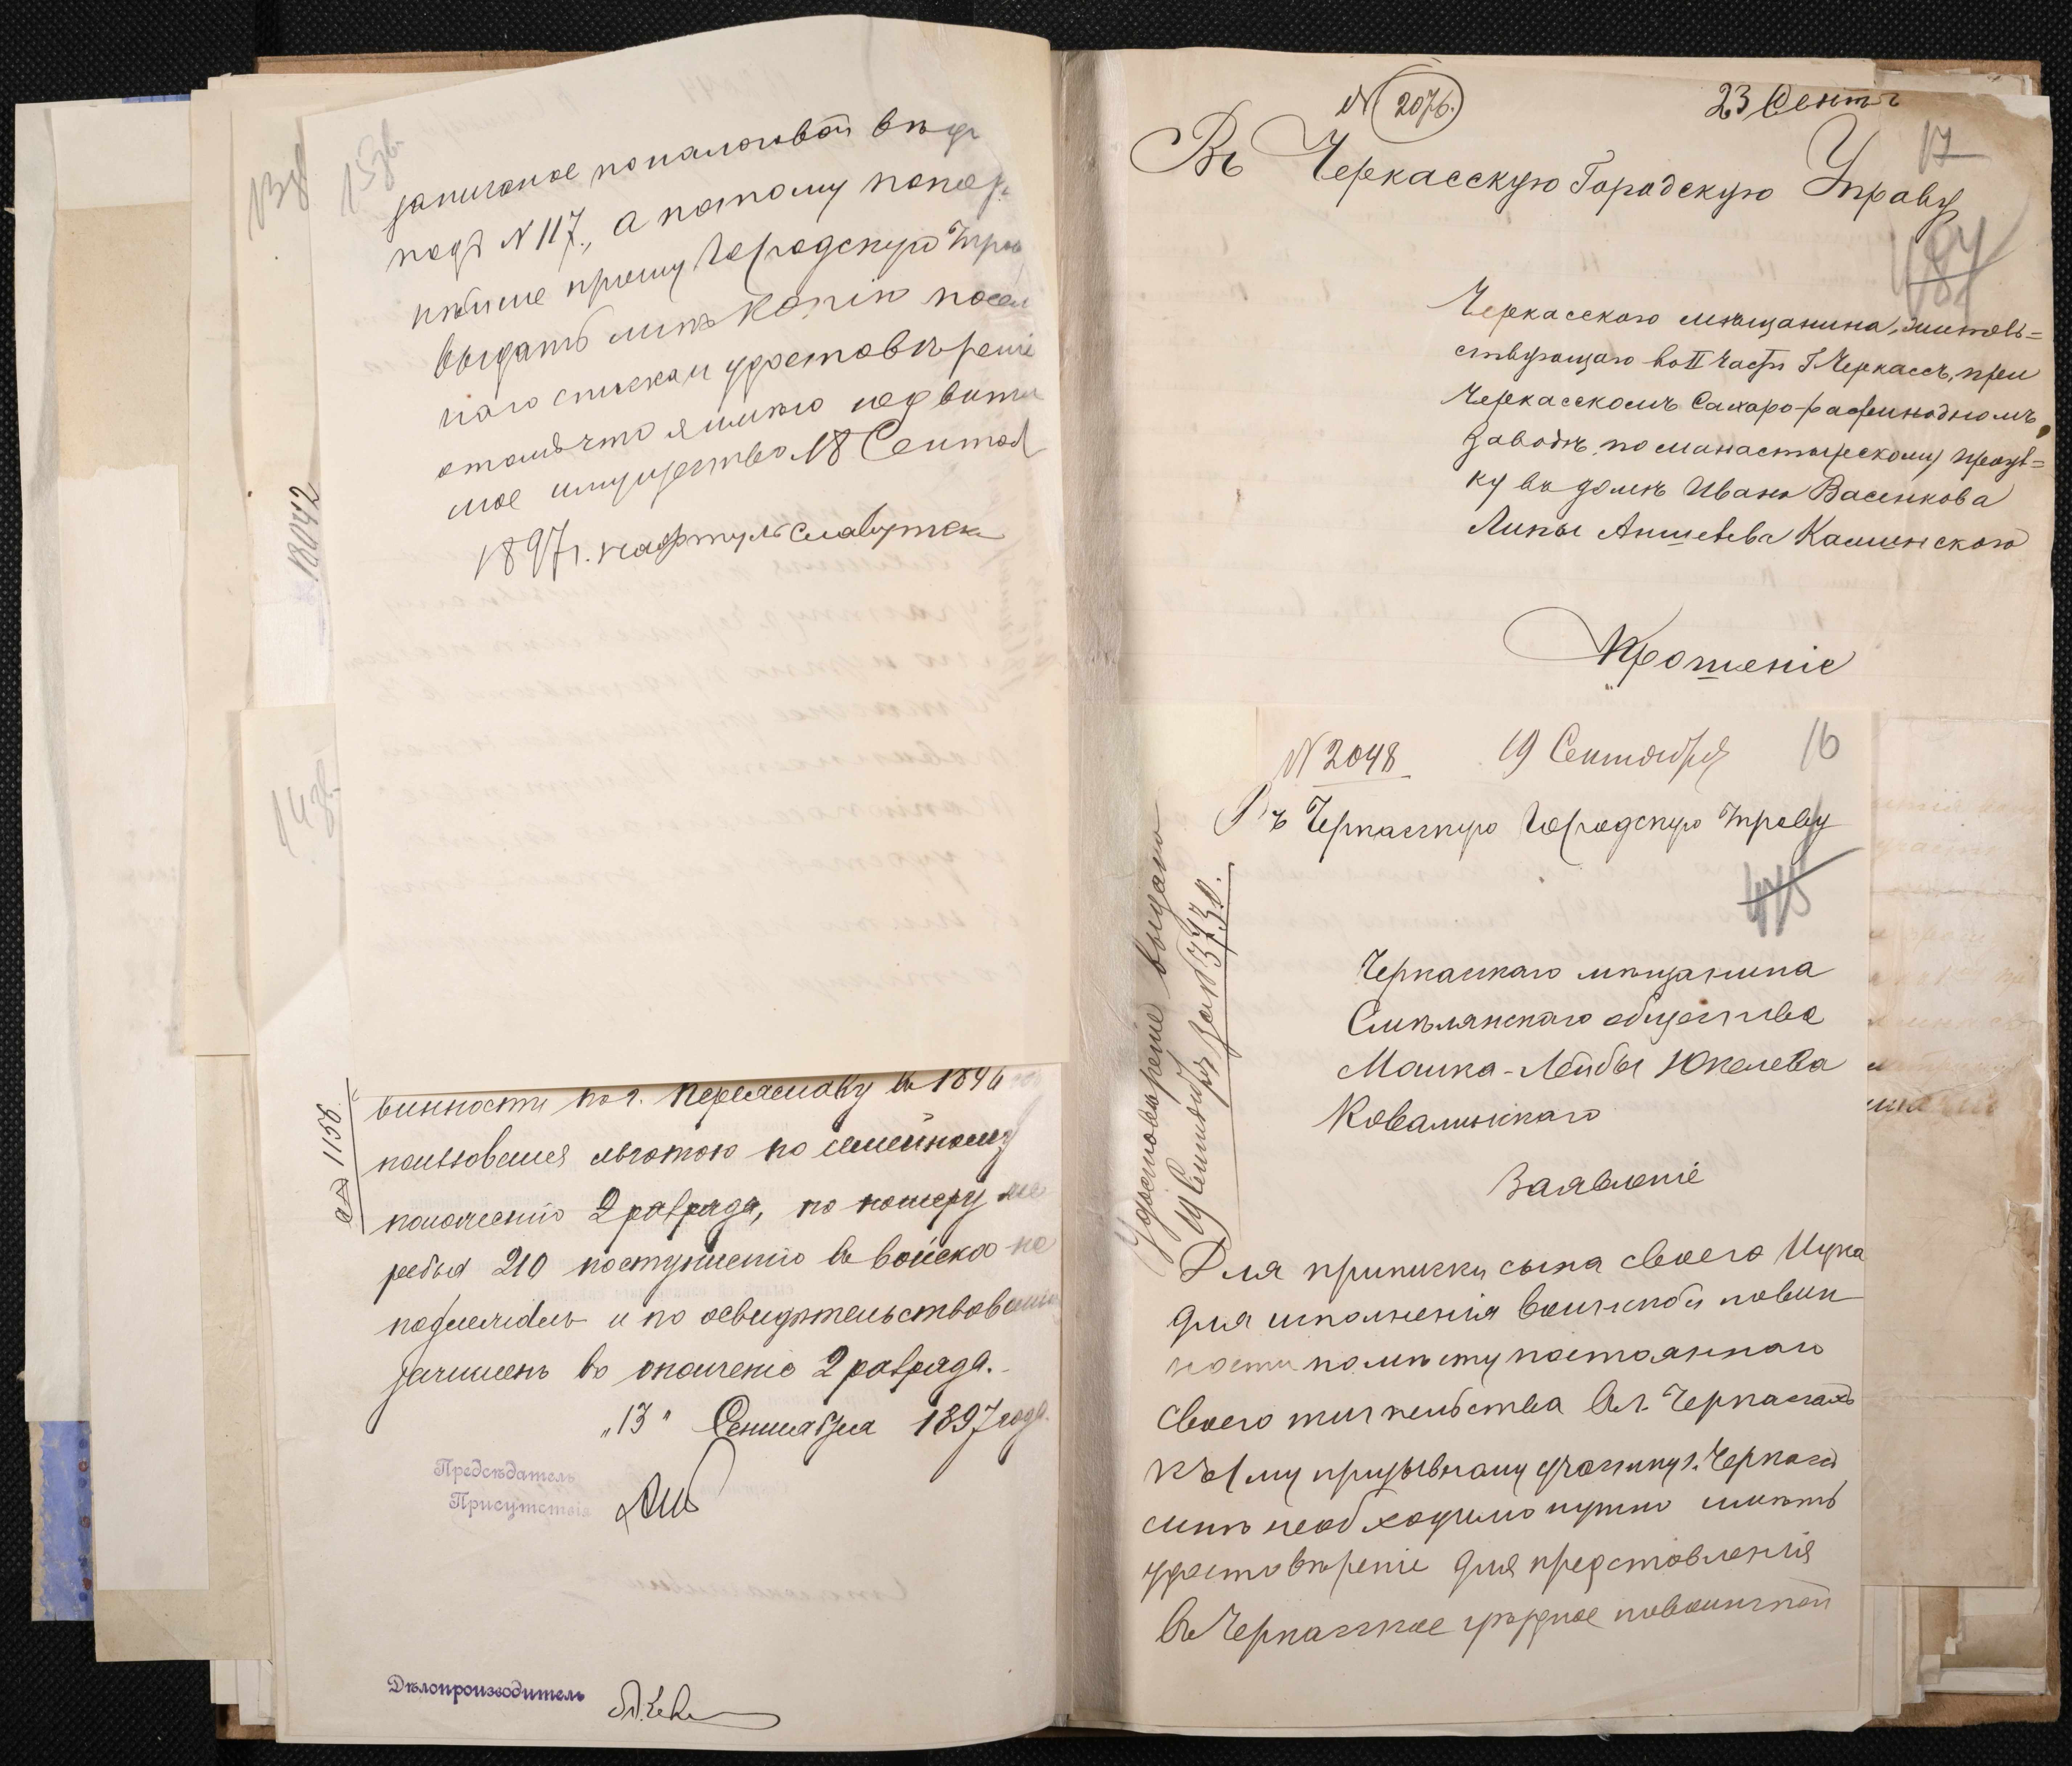 13 об
15 об.
записаное по налоговой вѣд
подъ N 117., а потому покор
нѣйше прошу Городскую Упра
выдать мнѣ копію посем
наго списка и удостовѣреніе
отомъ что я имѣю недвижи
мое имущество 18 Сентяб
1897 г. Нафтуль Славутск
18042
14 об.
N 1158.
винности по г. Переяславу въ 1896
пользовался льготою по семейному
положенію 2 разряда, по номеру же
ребья 210 поступленію въ войска не
подлежалъ и по освидѣтельствованію
зачисленъ въ ополченіе 2 разряда.
"13" Сентября 1897 года.
Предсѣдатель
Присутствія
Дѣлопроизводитель
N 2076.
23 Сентя
17
Въ Черкасскую Городскую Управу
Черкасского мѣщанина, житель=
ствующаго во II части Г Черкассъ, при
Черкасскомъ Сахаро-рафинадномъ
заводѣ, по манастырскому проул=
ку въ домѣ Ивана Васенкова
Липы Аншелева Каминского
Прошеніе
N 2048
19 Сентября
16
Въ Черкасскую Городскую Управу
475
Черкаскаго мѣщанина
Смѣлянскаго общества
Мошка-Лейбы Юкелева
Ковалинскаго
Заявленіе
Удостовѣреніе выдано
19 Сентября за N 3730.
Для приписки сына своего Ицка
для исполненія воинской повин
ности по мѣсту постоянного
своего жительства въ г. Черкасахъ
къ 1му призывному участку г. Черкасъ
мнѣ необходимо нужно имѣть
удостовѣреніе для представленія
въ Черкасское уѣздное повоинской